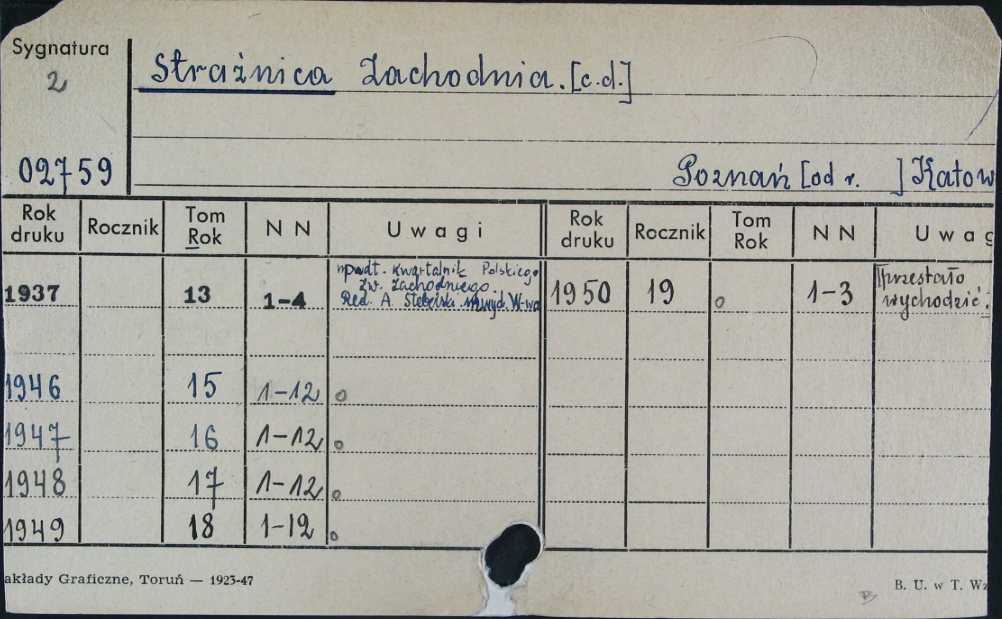 Sygnatura
2
Strażnica Zachodnia. [c.d.]
02759
Poznań [od r. ] Katow
Rok druku Rocznik Tom Rok N N Uwagi Rok druku Rocznik Tom Rok N N Uwag
npodt. Kwartalnik Polskiego
Zw. Zachodniego.
Red. A.
1937 13 1-4 1950 19 1-3 Przestało
wychodzić.
1946 15 1-12
1947 16 1-12
1948 17 1-12
1949 18 1-12
akłady Graficzne, Toruń — 1923-47 B. U. w T. Wz